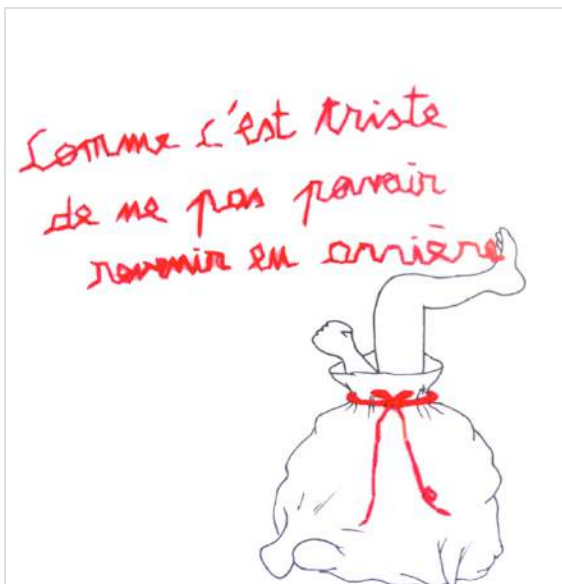 Comme c'est triste
de ne pas pouvoir
revenir en arrière